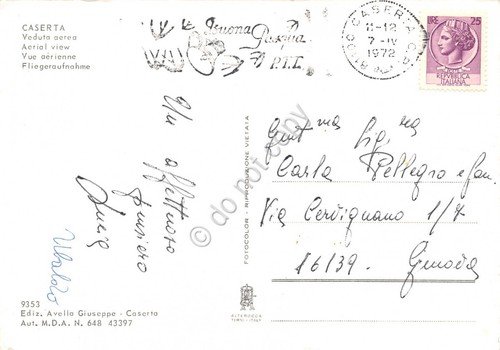 CASERTA
Veduta aerea
Aerial view
Vue aérienne
Fliegeraufnahme
Buona
Pasqua
P.T.I.
CASERTA
11-12
7-IV
1972
25
REPVBBLICA
ITALIANA
Un affettuoso
pensiero
Lucia
Ubaldo
Gent.ma Sig.ra
Carla Pellegro e fam.
Via Cervignano 1/7
16139. Genova
FOTOCOLOR - RIPRODUZIONE VIETATA
do not copy
9353
Ediz. Avella Giuseppe - Caserta
Aut. M.D.A. N. 648 43397
ALTEROCCA
TERNI